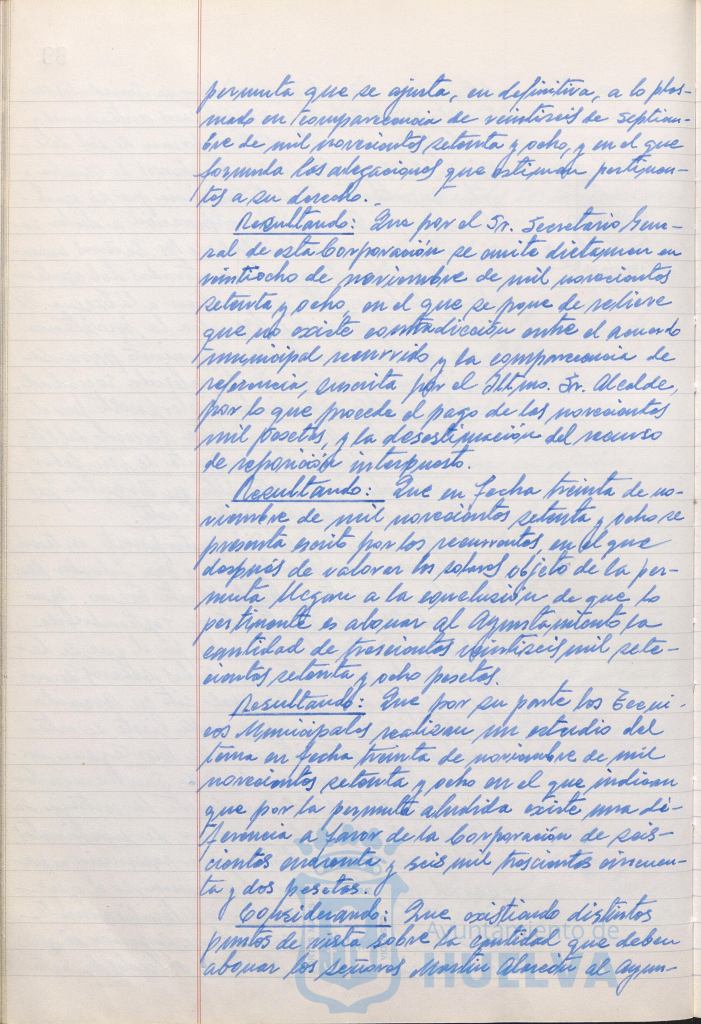 permuta que se ajusta, en definitiva, a lo plas-
mado en comparecencia de veintiseis de septiem-
bre de mil novecientos setenta y ocho, y en el que
formula las alegaciones que estiman pertinen-
tes a su derecho.
Resultando: Que por el Sr. Secretario Gene-
ral de esta Corporación se emite dictamen en
veintiocho de noviembre de mil novecientos
setenta y ocho, en el que se pone de relieve
que no existe contradicción entre el acuerdo
municipal recurrido y la comparecencia de
referencia, suscrita por el Iltmo. Sr. Alcalde,
por lo que procede el pago de las novecientas
mil pesetas, y la desestimación del recurso
de reposición interpuesto.
Resultando: Que en fecha treinta de no-
viembre de mil novecientos setenta y ocho se
presenta escrito por los recurrentes, en el que
después de valorar los solares objeto de la per-
muta llegan a la conclusión de que lo
pertinente es abonar al Ayuntamiento la
cantidad de trescientas veintiseis mil sete-
cientas setenta y ocho pesetas.
Resultando: Que por su parte los Técni-
cos Municipales realizan un estudio del
tema en fecha treinta de noviembre de mil
novecientos setenta y ocho en el que indican
que por la permuta aludida existe una di-
ferencia a favor de la Corporación de seis-
cientas cuarenta y seis mil trescientas cincuen-
ta y dos pesetas.
Considerando: Que existiendo distintos
puntos de vista sobre la cantidad que deben
abonar los señores Martín Alarcón al Ayun-
Ayuntamiento de
HUELVA